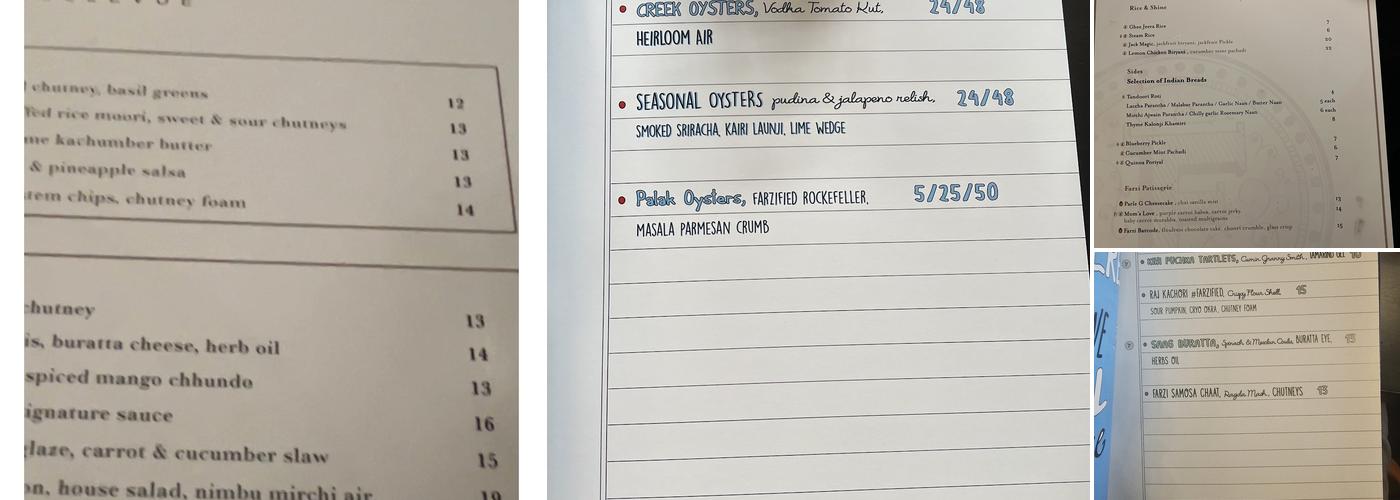 chutney, basil greens 12
rice moori, sweet & sour chutneys 13
kachumber butter 13
& pineapple salsa 13
chips, chutney foam 14
chutney 13
buratta cheese, herb oil 14
spiced mango chhundo 13
sauce 16
carrot & cucumber slaw 15
house salad, nimbu mirchi air
CREEK OYSTERS, Vodka Tomato Kut, 24/48
HEIRLOOM AIR
SEASONAL OYSTERS pudina & jalapeno relish, 24/48
SMOKED SRIRACHA, KAIRI LAUNJI, LIME WEDGE
Palak Oysters, FARZIFIED ROCKEFELLER, 5/25/50
MASALA PARMESAN CRUMB
Rice & Shine
Ghee Jeera Rice 7
Steam Rice 6
Jack Magic, jackfruit biryani, jackfruit Pickle 20
Lemon Chicken Biryani, cucumber mint pachadi 22
Sides
Selection of Indian Breads
Tandoori Roti 4
Laccha Parantha / Malabar Parantha / Garlic Naan / Butter Naan 5 each
Mirchi Ajwain Parantha / Chilly garlic Rosemary Naan 6 each
Thyme Kalonji Khamiri 8
Blueberry Pickle 7
Cucumber Mint Pachadi 6
Quinoa Poriyal 7
Farzi Patisserie
Parle G Cheesecake, chai vanilla mist 13
Mom's Love, purple carrot halwa, carrot jerky, 14
baby carrot murabba, toasted multigrains
Farzi Barcode, flourless chocolate cake, chikki crumble, glass crisp 15
PUCHKA TARTLETS, Cumin Granny Smith, TAMARIND GEL 10
RAJ KACHORI #FARZIFIED, Crispy Flour Shell, 15
SOUR PUMPKIN, CRYO OKRA, CHUTNEY FOAM
SAAG BURATTA, Spinach & BURATTA EYE, 15
HERBS OIL
FARZI SAMOSA CHAAT, Ragda Mash, CHUTNEYS 13